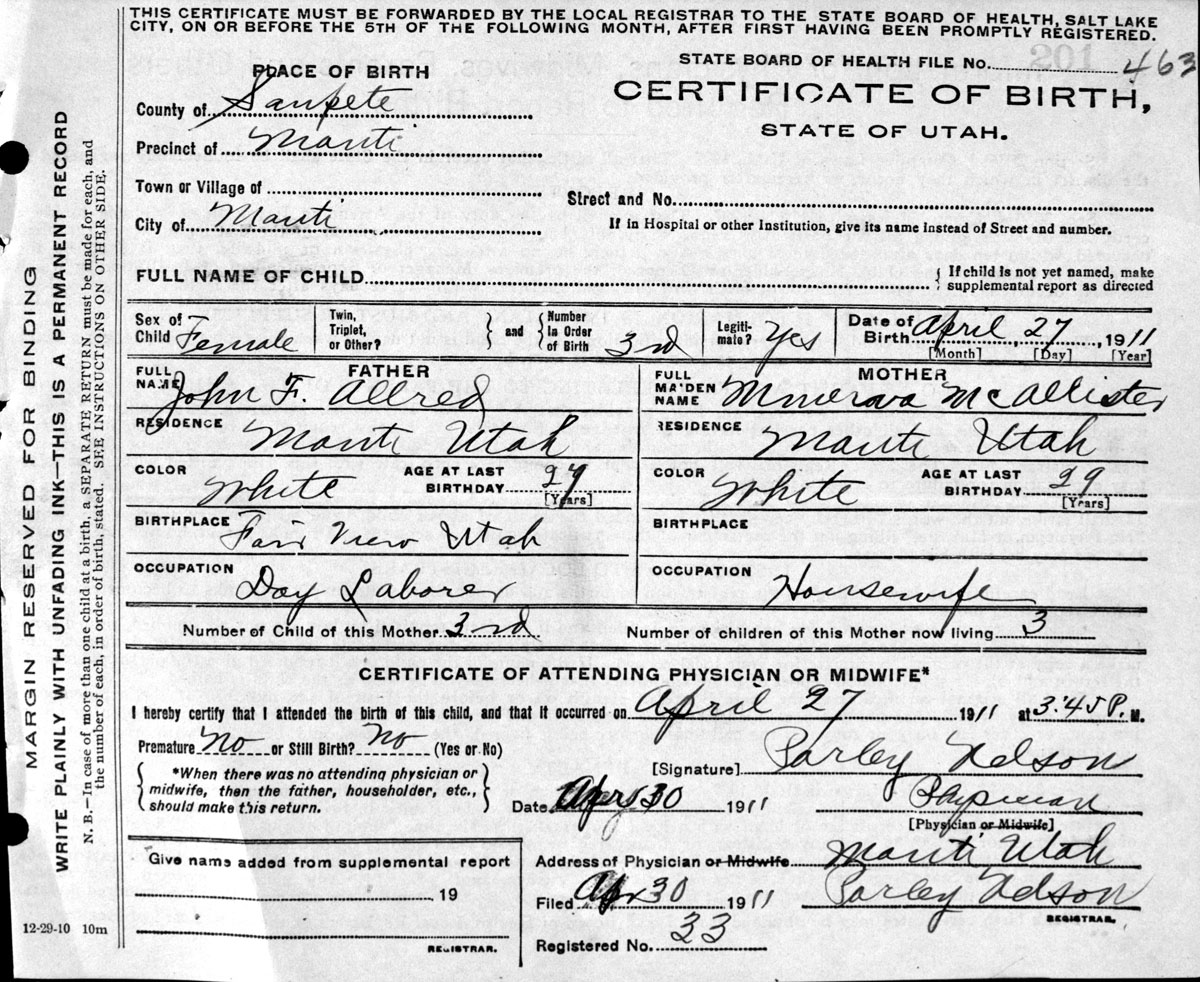 THIS CERTIFICATE MUST BE FORWARDED BY THE LOCAL REGISTRAR TO THE STATE BOARD OF HEALTH, SALT LAKE
CITY, ON OR BEFORE THE 5TH OF THE FOLLOWING MONTH, AFTER FIRST HAVING BEEN PROMPTLY REGISTERED.
PLACE OF BIRTH
County of Sanpete
Precinct of Manti
Town or Village of
City of Manti
STATE BOARD OF HEALTH FILE No. 201 463
CERTIFICATE OF BIRTH,
STATE OF UTAH.
Street and No.
If in Hospital or other Institution, give its name instead of Street and number.
FULL NAME OF CHILD { If child is not yet named, make
supplemental report as directed
Sex of Child Female
Twin, Triplet, or Other? } and { Number in Order of Birth 3rd
Legitimate? Yes
Date of Birth April, 27, 1911
[Month] [Day] [Year]
FATHER
FULL NAME John F. Allred
RESIDENCE Manti Utah
COLOR White AGE AT LAST BIRTHDAY 29 [Years]
BIRTHPLACE Fair View Utah
OCCUPATION Day Laborer
MOTHER
FULL MAIDEN NAME Minerava McAllister
RESIDENCE Manti Utah
COLOR White AGE AT LAST BIRTHDAY 29 [Years]
BIRTHPLACE
OCCUPATION Housewife
Number of Child of this Mother 3rd Number of children of this Mother now living 3
CERTIFICATE OF ATTENDING PHYSICIAN OR MIDWIFE*
I hereby certify that I attended the birth of this child, and that it occurred on April 27 1911 at 3:45 P. M.
Premature No or Still Birth? No (Yes or No)
{ *When there was no attending physician or
midwife, then the father, householder, etc.,
should make this return. }
[Signature] Parley Nelson
Date Apr 30 1911 Physician
[Physician or Midwife]
Give name added from supplemental report
19
REGISTRAR.
Address of Physician or Midwife Manti Utah
Filed Apr 30 1911 Parley Nelson
REGISTRAR.
Registered No. 33
MARGIN RESERVED FOR BINDING
WRITE PLAINLY WITH UNFADING INK—THIS IS A PERMANENT RECORD
N. B.—In case of more than one child at a birth, a SEPARATE RETURN must be made for each, and
the number of each, in order of birth, stated. SEE INSTRUCTIONS ON OTHER SIDE.
12-29-10 10m